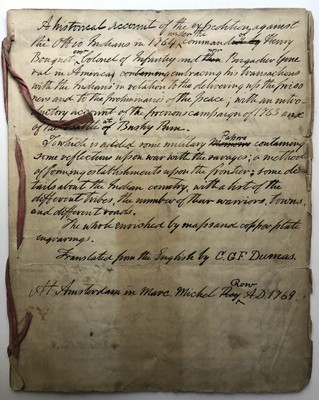 A historical account of the expedition against
the Ohio Indians in 1764, under the command of by Henry
Bouquet, Colonel of Infantry and Brigadier Gene
ral in America; containing embracing his transactions
with the Indians in relation to the delivering up the priso
ners and to the preliminaries of the peace; with an intro
ductory account of the previous campaign of 1763 and
of the battle at Bushy Run.
To which is added some military Papers Memoirs containing
some reflections upon war with the savages; a method
of forming establishments upon the frontier; some de
tails about the Indian country, with a list of the
different tribes, the number of their warriors, towns,
and different roads.
The whole enriched by maps and copper plate
engravings.
Translated from the English by C.G.F. Dumas.
At Amsterdam in Marc Michel Roy Row A.D. 1769.